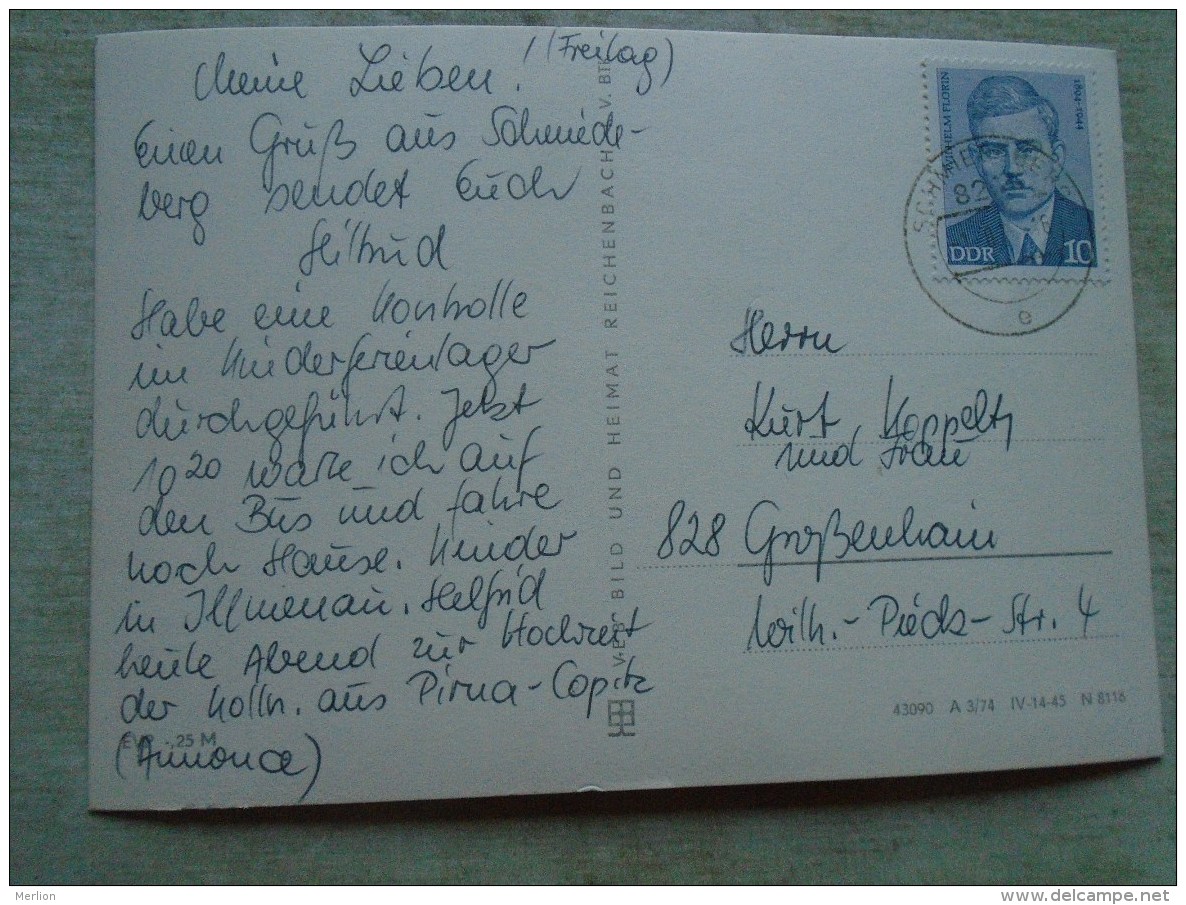 Meine Lieben! (Freitag)
Einen Gruß aus Schmiede-
berg sendet Euch
Hiltrud
Habe eine Kontrolle
im Kinderferienlager
durchgeführt. Jetzt
10 20 warte ich auf
den Bus und fahre
nach Hause. Kinder
in Illmenau. Helfrid
heute Abend zur Hochzeit
der Kolln. aus Pirna-Copitz
(Annona)
EVP -,25 M
V.E.B. BILD UND HEIMAT REICHENBACH I. V. BT
WILHELM FLORIN
1894-1944
DDR 10
82
Herrn
Kurt Koppeltz
und Frau
828 Großenhain
Wilh.-Pieck-Str. 4
43090 A 3/74 IV-14-45 N 8118
Merlion
www.delcampe.net